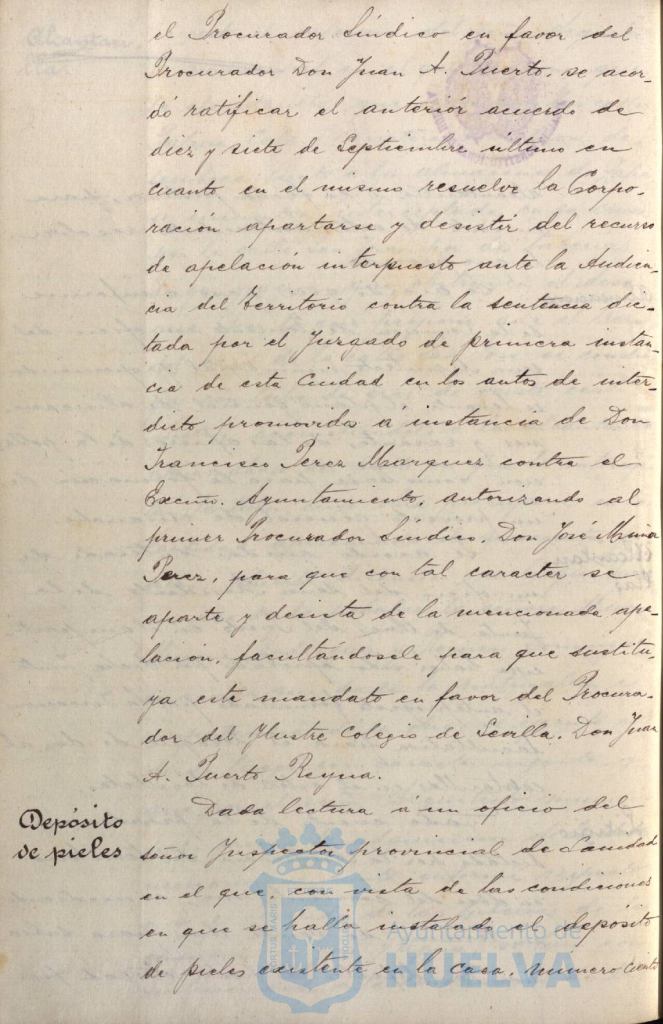 el Procurador Síndico en favor del
Procurador Don Juan A. Puerto, se acor-
dó ratificar el anterior acuerdo de
diez y siete de Septiembre último en
cuanto en el mismo resuelve la Corpo-
ración apartarse y desistir del recurso
de apelación interpuesto ante la Audien-
cia del Territorio contra la sentencia dic-
tada por el Juzgado de primera instan-
cia de esta Ciudad en los autos de inter-
dicto promovida á instancia de Don
Francisco Perez Marquez contra el
Excmo. Ayuntamiento, autorizando al
primer Procurador Síndico, Don José
Perez, para que con tal caracter se
aparte y desista de la mencionada ape-
lación, facultándosele para que sustitu-
ya este mandato en favor del Procura-
dor del Ylustre Colegio de Sevilla, Don Juan
A. Puerto Reyna.
Depósito
de pieles
Dada lectura á un oficio del
señor Inspector provincial de Sanidad
en el que, con vista de las condiciones
en que se halla instalado el depósito
de pieles existente en la casa, numero ciento
Ayuntamiento de
HUELVA